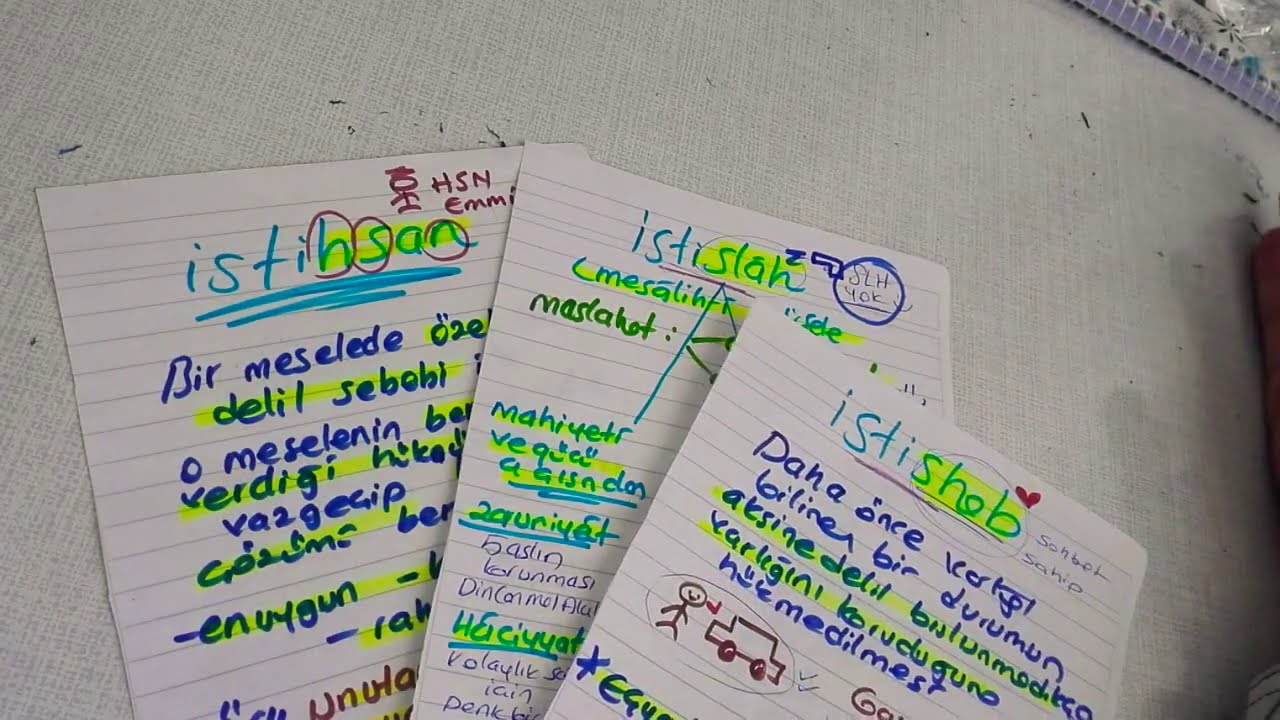 HSN
Emmi
istihsan
Bir meselede öze
delil sebebi i
o meselenin ben
verdiği hükü
vazgeçip
çözümü ben
-en uygun -
- rah
unuta
istislah
SLH
YOK
(mesâlih
maslahat :
Mahiyeti
ve gücü
açısından
Zaruriyât
5 aslın
korunması
DinCanMalAkl
Hâciyyat
kolaylık sa
için
Denk bi
istishab
Sohbet
Sahip
Daha önce varlığı
bilinen bir durumun
aksine delil bulunmadıkça
varlığını koruduğuna
hükmedilmesi